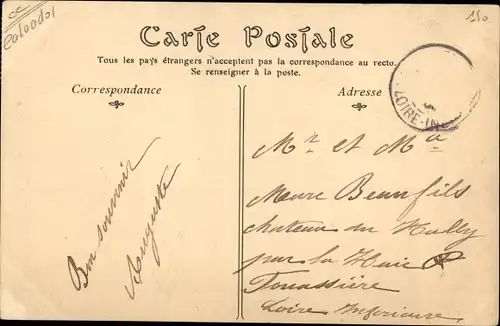 ce
Calvados
110
Carte Postale
Tous les pays étrangers n'acceptent pas la correspondance au recto.
Se renseigner à la poste.
Correspondance
Adresse
LOIRE-IN
Bon souvenir
Auguste
Mr et Ma
Beaufils
chateau du
par la Haie
Fouassière
Loire Inférieure